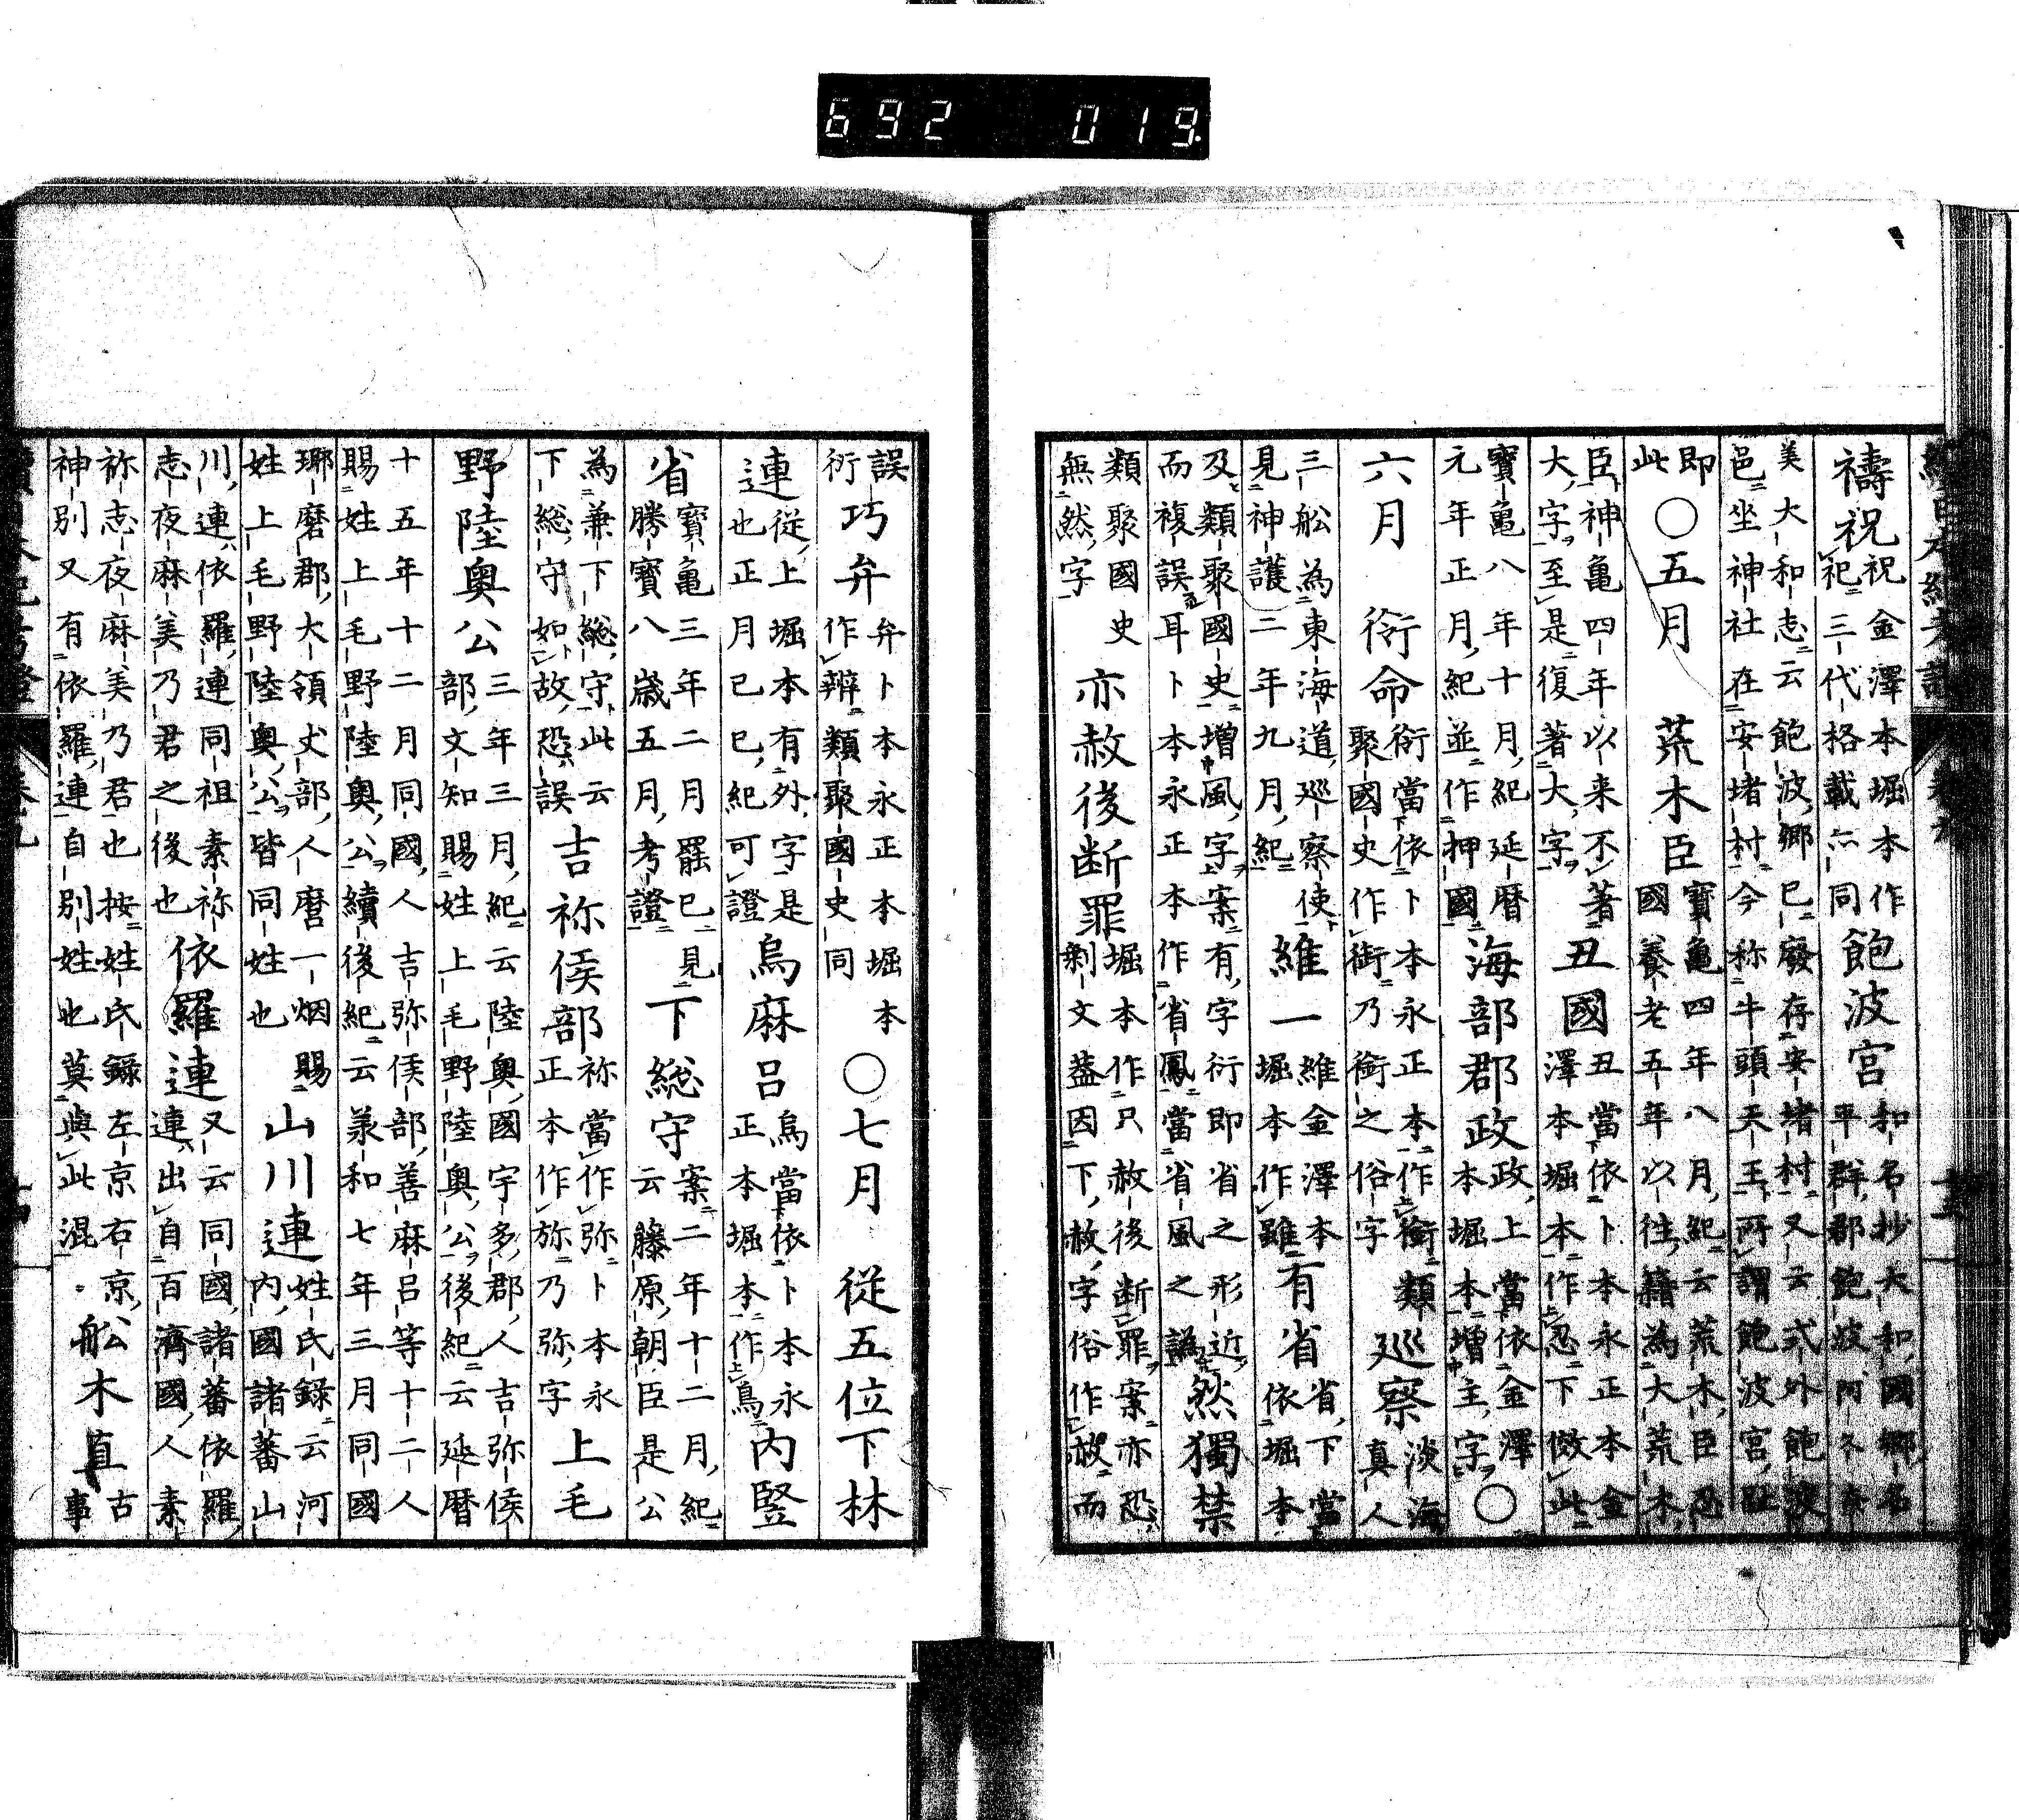 續日本紀考證 卷九 十五
禱祝祝金澤本堀本作祀三代格載亦同飽波宮和名抄大和國郷名平群郡飽波阿久奈
美大和志云飽波郷已廢存安堵村又云式外飽波邑坐神社在安堵村今称牛頭天王所謂飽波宮趾
即此○五月 荒木臣寶亀四年八月紀云荒木臣忍國養老五年以往籍為大荒木
臣神亀四年以来不著大字至是復著大字丑國丑當依卜本永正本金澤本堀本作忍下傚此
寶亀八年十月紀延暦元年正月紀並作押國海部郡政政上當依金澤本堀本増主字○
六月 衔命衔當依卜本永正本作銜類聚國史作衘乃銜之俗字巡察淡海真人
三舩為東海道巡察使見神護二年九月紀維一維金澤本堀本作雖有省省下當依堀本
及類聚國史増風字案有字衍即省之形近而複誤耳卜本永正本作省鳳當省風之譌然獨禁
類聚國史無然字亦赦後断罪堀本作只赦後断罪案亦恐剰文蓋因下赦字俗作而
誤衍巧弁弁卜本永正本堀本作辨類聚國史同○七月 從五位下林
連從上堀本有外字是也正月己巳紀可證烏麻呂烏當依卜本永正本堀本作鳥内竪
省寶亀三年二月罷已見勝寶八歳五月考證下総守案二年十二月紀云藤原朝臣是公
為兼下総守此云下総守如故恐誤吉祢侯部祢當作弥卜本永正本作旀乃弥字上毛
野陸奥公三年三月紀云陸奥國宇多郡人吉弥侯部文知賜姓上毛野陸奥公後紀云延暦
十五年十二月同國人吉弥侯部善麻呂等十二人賜姓上毛野陸奥公續後紀云羕和七年三月同國
瑘磨郡大領丈部人麿一烟賜姓上毛野陸奥公皆同姓也山川連姓氏録云河内國諸蕃山
川連依羅連同祖素祢志夜麻美乃君之後也依羅連又云同國諸蕃依羅連出自百濟國人素
祢志夜麻美乃君也按姓氏録左京右京神別又有依羅連自別姓也莫與此混舩木直古事